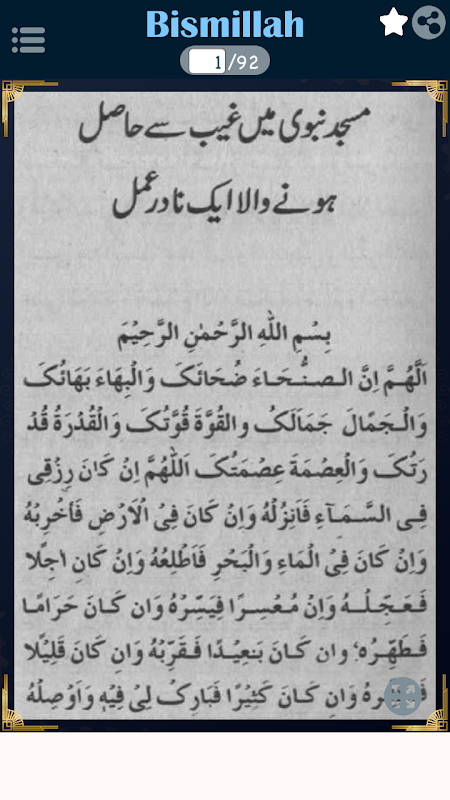 Bismillah
1/92
مسجد نبوی میں غیب سے حاصل
ہونے والا ایک نادر عمل
بِسْمِ اللهِ الرَّحْمٰنِ الرَّحِيْمَ
اَللّٰهُمَّ اِنَّ الصُّحَاءَ ضُحَائَكَ وَالْبِهَاءَ بَهَائُكَ
وَالْجَمَالَ جَمَالَكُ وَالقُوَّةَ قُوَّتُكَ وَالْقُدْرَةُ قُدْ
رَتُكَ وَالْعِصْمَةَ عِصْمَتُكَ اَللّٰهُمَّ اِنْ كَانَ رِزْقِى
فِى السَّمَآءِ فَاَنْزِلْهُ وَاِنْ كَانَ فِى الْاَرْضِ فَاَخْرِبْهُ
وَاِنْ كَانَ فِى الْمَاءِ وَالْبَحْرِ فَاَطْلِعْهُ وَاِنْ كَانِ اٰجِلًا
فَعَجِّلْهُ وَاِنْ مُعْسِرًا فَيَسِّرْهُ وَاِن كَانَ حَرَامًا
فَطَهِّرْهُ وان كَانَ بَعِيْدًا فَقَرِّبْهُ وَاِن كَانَ قَلِيْلًا
وَاِنْ كَانَ كَثِيْرًا فَبَارِكْ لِىْ فِيْهِ وَاَوْصِلْهُ